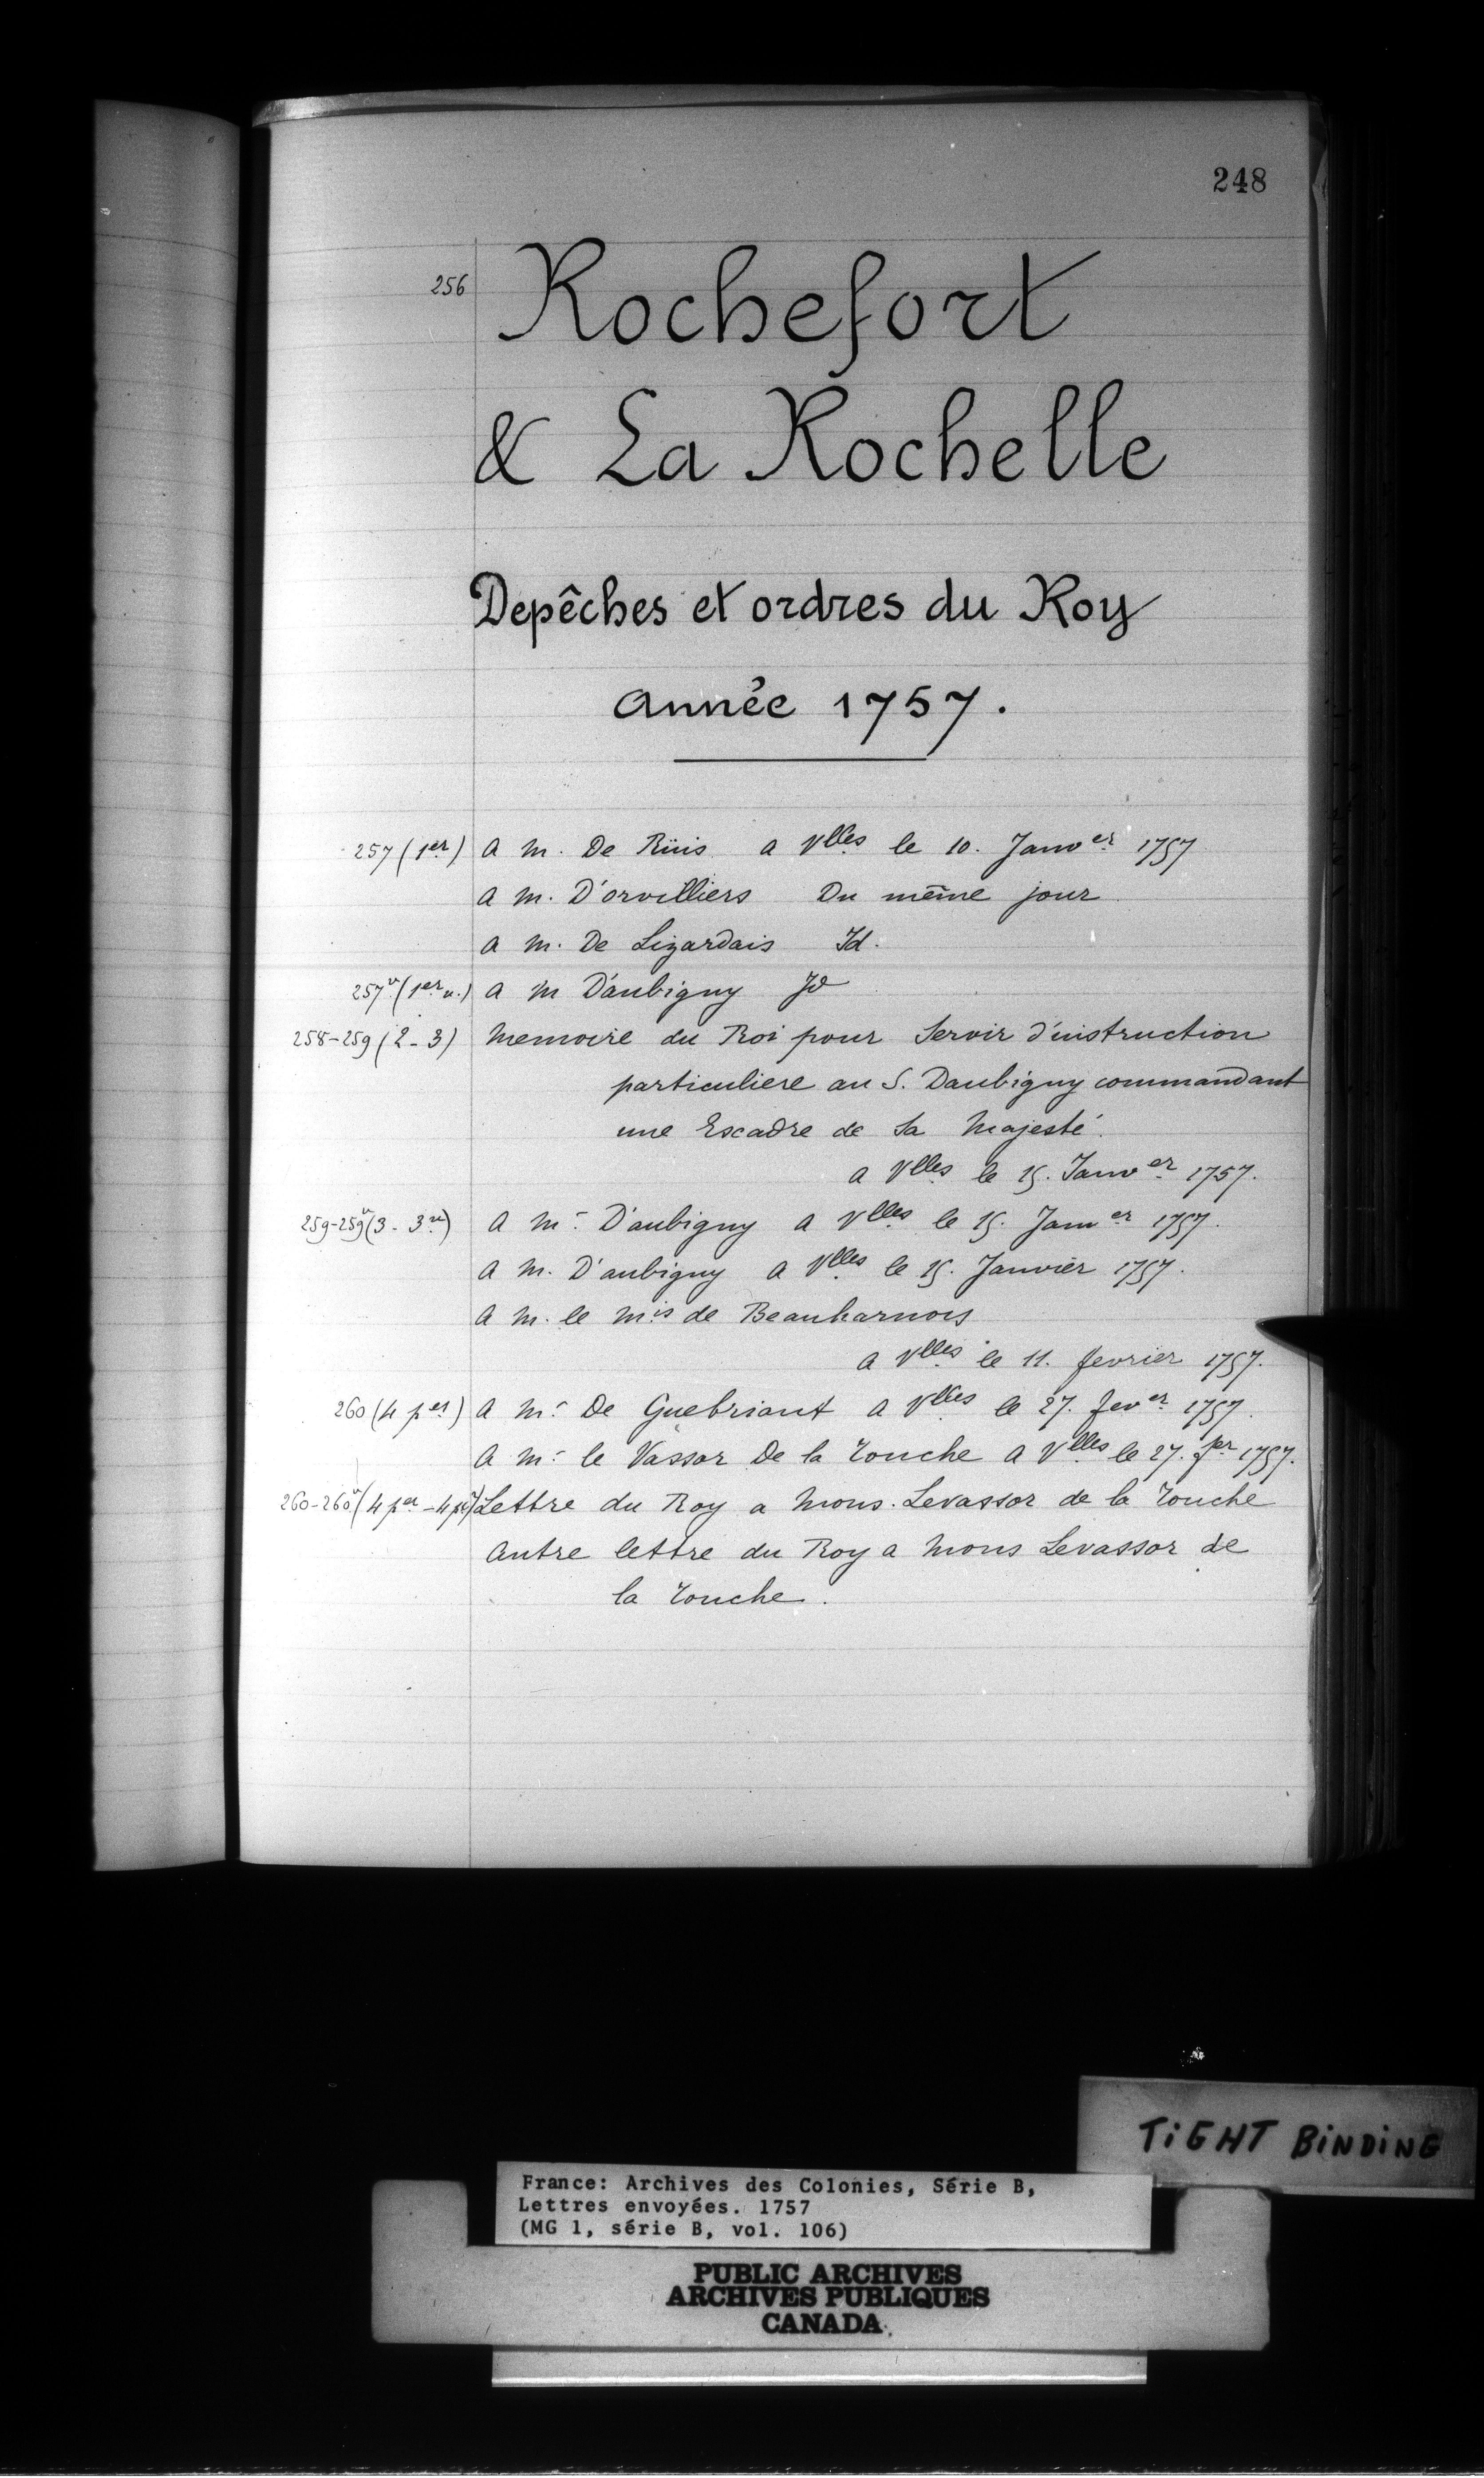 248
256 Rochefort
& La Rochelle
Depêches et ordres du Roy
Année 1757.
257 (1er) A M. De Rüis a Vlles le 10. Janver 1757
A M. D'orvilliers Du même jour
A M. De Lizardais Id.
257v (1er v.) A M D'aubigny Id
258-259 (2-3) Memoire du Roi pour Servir d'instruction
particuliere au S. Daubigny commandant
une Escadre de Sa Majesté.
a Vlles le 15. Janver 1757.
259-259v (3-3v) A Mr. D'aubigny a Vlles le 15. Janver 1757.
A M. D'aubigny a Vlles le 15. Janvier 1757.
A M. le Mis de Beauharnois
a Vlles le 11. fevrier 1757.
260 (4 per) A Mr. De Guebriant a Vlles le 27. fever 1757.
A Mr. le Vassor De la Touche a Vlles le 27. fer 1757.
260-260v (4 per - 4 per) Lettre du Roy a Mons. Levassor de la Touche
Autre lettre du Roy a Mons Levassor de
la Touche.
TiGHT BiNDiNG
France: Archives des Colonies, Série B,
Lettres envoyées. 1757
(MG 1, série B, vol. 106)
PUBLIC ARCHIVES
ARCHIVES PUBLIQUES
CANADA